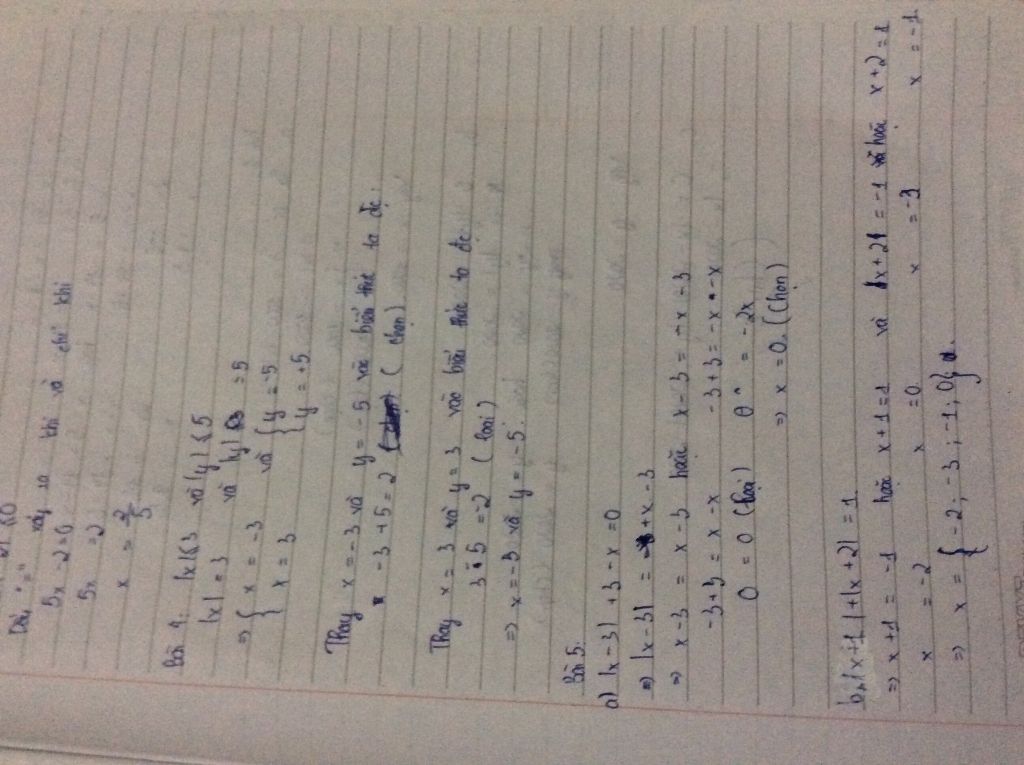 Dấu "=" xảy ra khi và chỉ khi
5x - 2 = 0
5x = 2
x = 2/5
Bài 4: |x| ≤ 3 và |y| ≤ 5
|x| = 3 và |y| = 5
=> { x = -3 và { y = -5
x = 3 y = +5
Thay x = -3 và y = -5 vào biểu thức ta đc:
-3 + 5 = 2 (chọn)
Thay x = 3 và y = 3 vào biểu thức ta đc:
3 - 5 = -2 (loại)
=> x = -3 và y = -5.
Bài 5:
a) |x - 3| + 3 - x = 0
=> |x - 3| = x - 3
=> x - 3 = x - 3 hoặc x - 3 = -x - 3
-3 + 3 = x - x -3 + 3 = -x - x
0 = 0 (loại) 0 = -2x
=> x = 0. (Chọn)
b, |x + 1| + |x + 2| = 1
=> x + 1 = -1 hoặc x + 1 = 1 và x + 2 = -1 hoặc x + 2 = 1
x = -2 x = 0 x = -3 x = -1
=> x = { -2; -3; -1; 0}